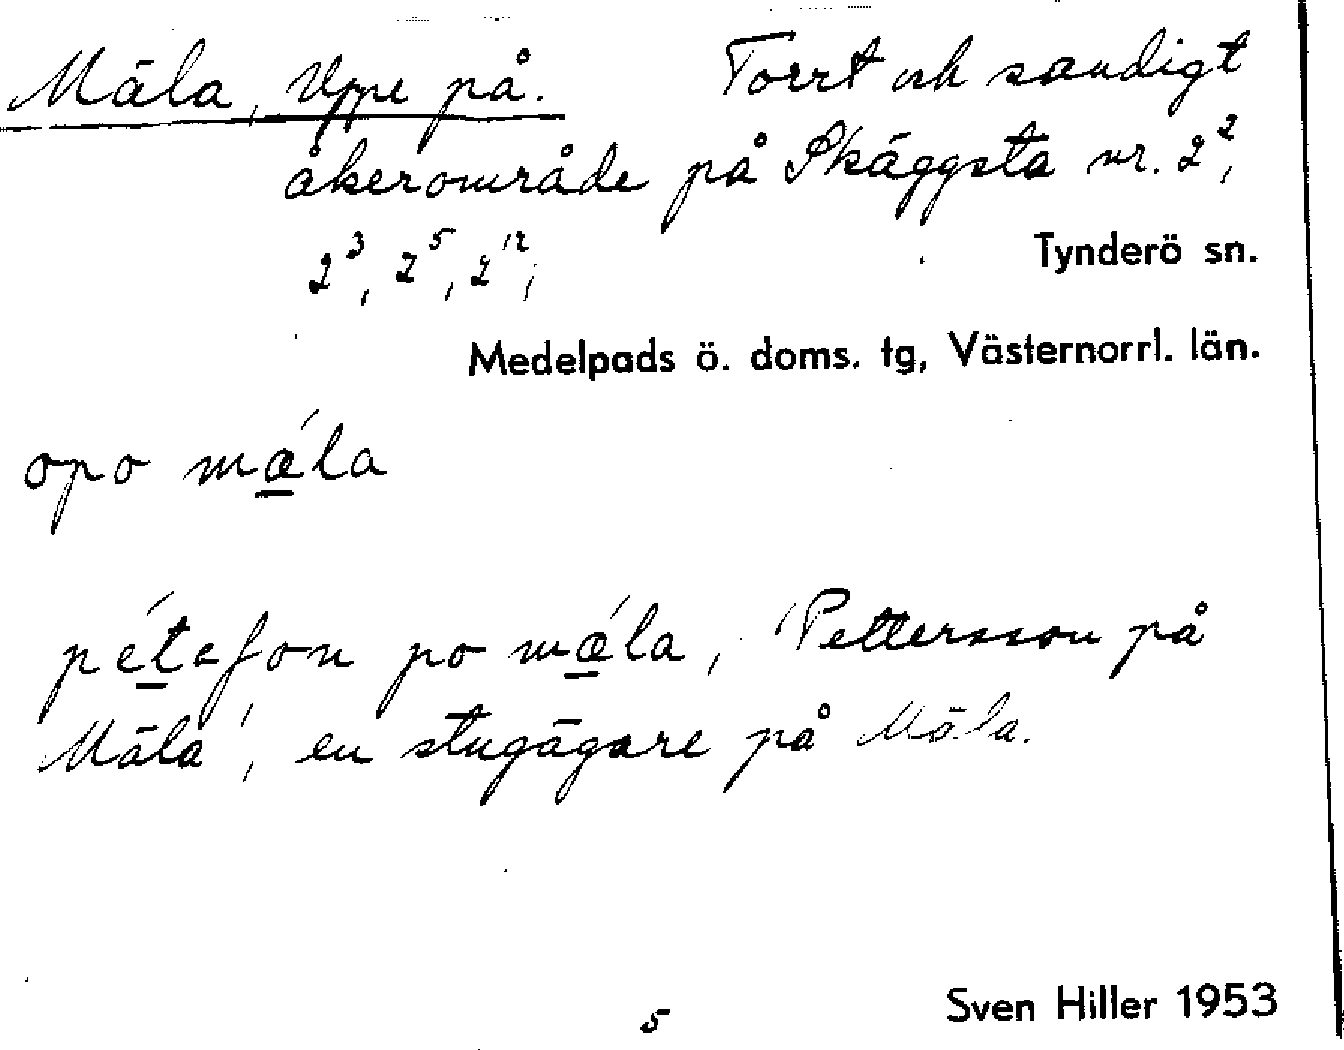 Mäla, Uppe på. Torrt och sandigt
åkerområde på Skäggsta nr. 2²,
2³, 2⁵, 2¹², Tynderö sn.
Medelpads ö. doms. tg, Västernorrl. län.
opo mǽla
pétaʃon po mǽla, 'Pettersson på
Mäla', en stugägare på Mäla.
5
Sven Hiller 1953